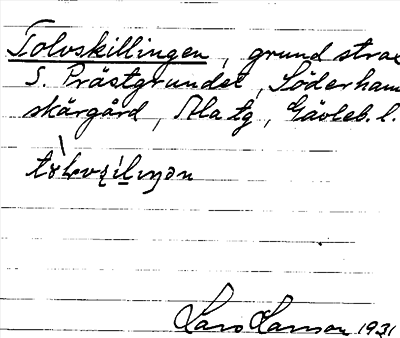 Tolvskillingen, grund strax
S. Prästgrundet, Söderhamn
skärgård, Ala tg, Gävleb. l.
Lars Larsson 1931